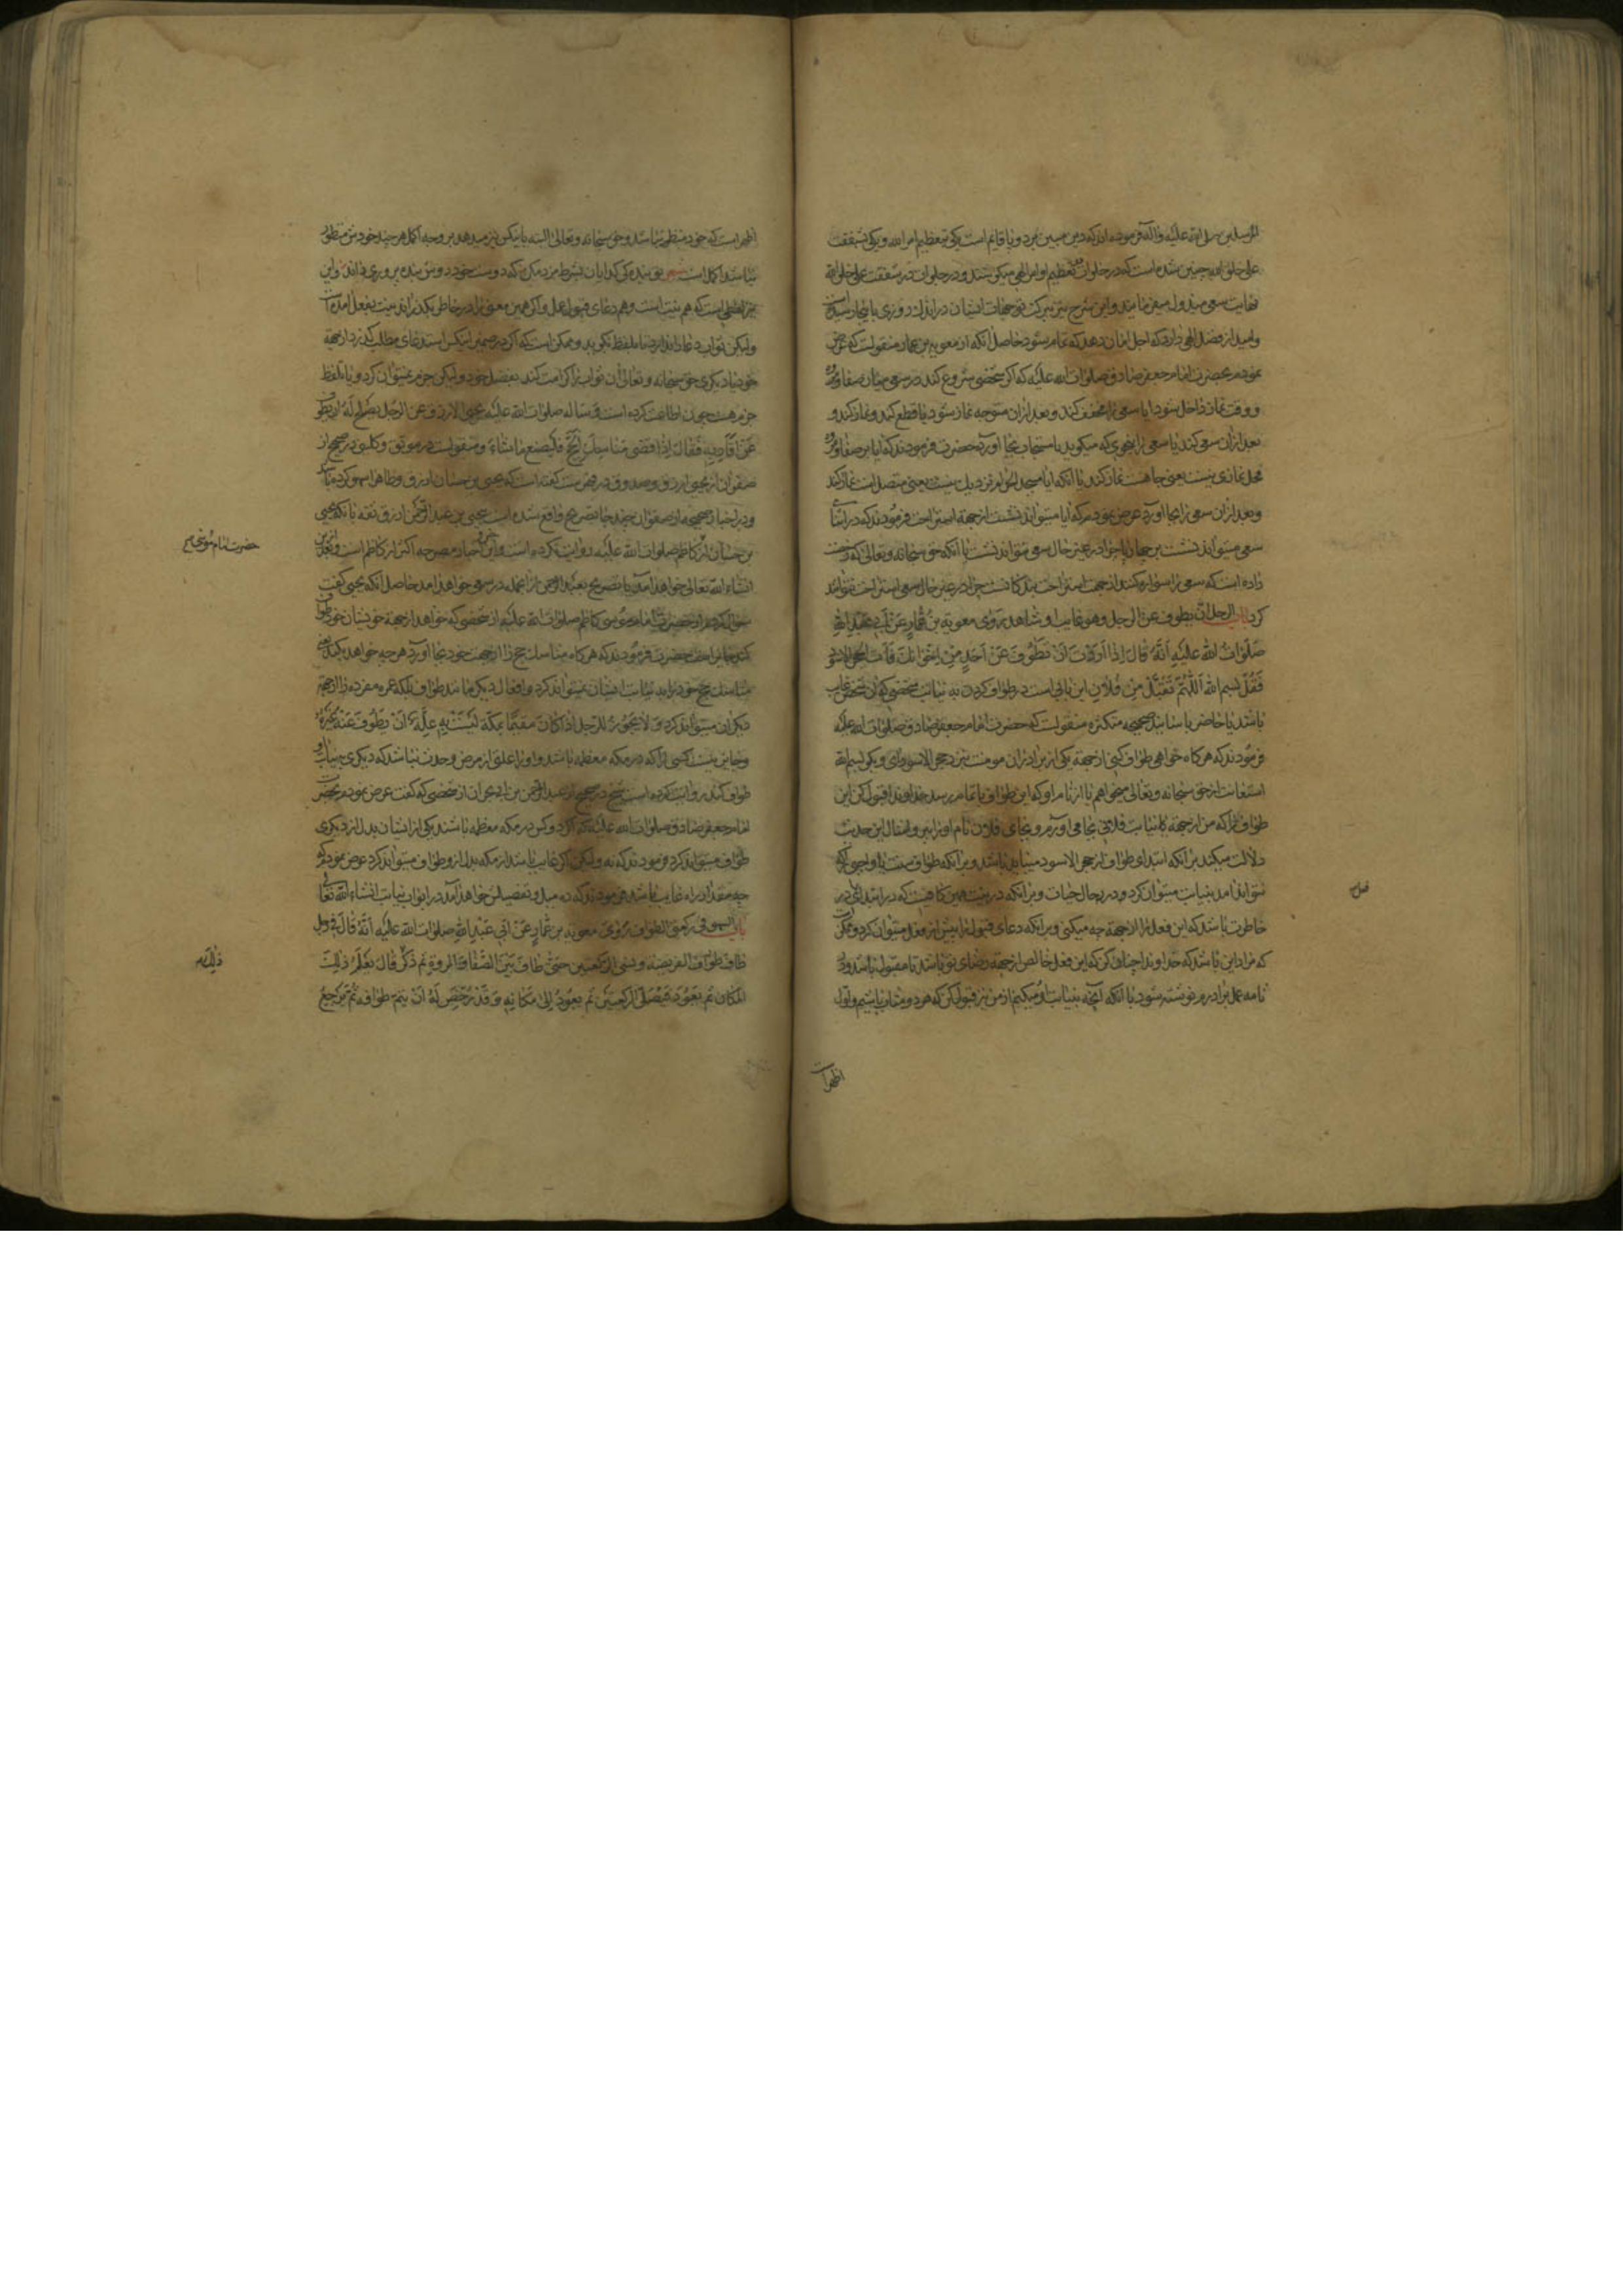 المرسلین صلی الله علیه وآله فرموده اند که دین مبین مرد و پا قایم است یکی تعظیم امر الله ویکی شفقت
علی خلق الله چنین شده است که در خلوات تعظیم اوامر الهی میکوشند و در جلوات در شفقت علی خلق الله
نهایت سعی مبذول میفرمایند واین شرح نیز ببرکت توجهات ایشان در اندك روزی باینجا رسیده است
وامید از فضل الهی دارد که اجل امان دهد که تمام شود حاصل آنکه از معویة بن عمار منقولست که عرض
نمودم بحضرت امام جعفر صادق صلوات الله علیه که اگر شخصی شروع کند در سعی میان صفا ومروه
و وقت نماز داخل شود آیا سعی را مخفف کند وبعد ازان متوجه نماز شود یا قطع کند ونماز کند و
بعد ازان سعی کند یا سعی را بنحوی که میگوید با مستحبات بجا آورد حضرت فرمودند که آیا بر صفا ومروه
محل نمازی نیست یعنی جا هست نماز کند یا آنکه آیا مسجد الحرام نزدیك نیست یعنی متصل است نماز کند
وبعد ازان سعی را بجا آورد عرض نمودم که آیا میتواند نشست از جهة استراحت فرمودند که در اثنای
سعی میتواند نشست بر چهارپا چرا در عین حال سعی نتواند نشست یا آنکه حق سبحانه وتعالی که رخصت
داده است که سعی را سواره کنند از جهت استراحت بندکانست چرا در عین حال سعی استراحت نتوانند
کرد باب الرجل یطوف عن الرجل وهو غایب او شاهد رَوی معویة بن عَمّارٍ عَنْ اَبی عَبْدِ اللهِ
صَلَواتُ الله عَلَیهِ اَنَّهُ قالَ اِذا اَرَدْتَ اَنْ تَطُوفَ عَنْ اَحَدٍ مِنْ اِخْوانِكَ فَأتِ الحجر الاسود
فَقُلْ بسم الله اَللّهُمَّ تَقَبَّلْ مِنْ فُلانٍ این بابی است در طواف کردن به نیابت شخصی که آن شخص غایب
باشد یا حاضر باسانید صحیحه متکثره منقولست که حضرت امام جعفر صادق صلوات الله علیه
فرمودند که هرکاه خواهی طواف کنی از جهة یکی از برادران مومنت نزد حجر الاسود آی وبکو بسم الله
استعانت از حق سبحانه وتعالی میخواهم یا از نام او که این طواف باتمام رسد خداوندا قبول کن این
طواف را که من از جهة یا نیابت فلانی بجا می آورم وبجای فلان نام او را ببر وامثال این حدیث
دلالت میکند بر آنکه ابتدای طواف از حجر الاسود میباید باشد وبر آنکه طواف سنت یا واجبی که
نتواند آمد بنیابت میتوان کرد ودر حال حیات وبر آنکه در نیت همین کافیست که در ابتدای در
خاطرت باشد که این فعل را از جهة چه میکنی وبر آنکه دعای قبول را پیش از فعل میتوان کرد وممکن است
که مراد این باشد که خداوندا چنان کن که این فعل خالص از جهة رضای تو باشد تا مقبول باشد ودر
نامه عمل برادرم نوشته شود با آنکه آنچه بنیابت او میکنم از من نیز قبول کن که هر دو مثاب باشیم واول
اظهراست
فعل
اظهر است که خود منظور نباشد وحق سبحانه وتعالی البته باینکس نیز میدهد بر وجه اکمل هر چند خودش منظور
نباشد اکمل است شعر تو بندگی کدایان بشرط مزد مکن که دوست خود روش بنده پروری داند واین
نیز فضلی است که هم نیت است وهم دعای قبول عمل واگر همین معنی را در خاطر بکذراند نیت بفعل آمده است
ولیکن ثواب دعا ندارد تا بلفظ نگوید وممکن است که اگر در ضمیر اینکس استدعای مطلب کذرد از جهة
خود یا دیکری حق سبحانه وتعالی آن ثواب را کرامت کند بفضل خود ولیکن جزم نمیتوان کرد وبا تلفظ
جزم هست چون اطاعت کرده است وَسَأله صلوات الله علیه یحیی الازرق عن الرّجُل یَصْلح لَهُ ان یطوف
عَنْ اَقارِبِهِ فَقالَ اِذا قَضی مَناسِكَ الْحَجِّ فَلْیَصْنَع ماشاءَ ومنقولست در موثق وکلینی در صحیح از
صفوان از یحیی ازرق وصدوق در فهرست کفته است که یحیی بن حسان ازرق وظاهرا سهو کرده باشد
ودر اخبار صحیحه از صفوان چند جا تصریح واقع شده است یحیی بن عبد الرحمن ازرق ثقه با آنکه یحیی
بن حسان از کاظم صلوات الله علیه روایت کرده است واین اخبار مصرحه اکثر از کاظم است وبعد ازین
انشاء الله تعالی خواهد آمد با تصریح بعبد الرحمن از جمله در سعی خواهد آمد حاصل آنکه یحیی کفت
سوال کردم از حضرت امام موسی کاظم صلوات الله علیه از شخصی که خواهد از جهة خویشان خود طواف
کند جایز است حضرت فرمودند که هرکاه مناسك حج را از جهت خود بجا آورد هر چه خواهد بکند یعنی
مناسك حج خود را به نیابت ایشان نمیتواند کرد وافعال دیکر مانند طواف بلکه عمره مفرده را از جهة
دیکران میتواند کرد وَلا یَجُوزُ لِلرَّجُلِ اِذا کانَ مُقیماً بِمَکَّةَ لَیْسَتْ بِهِ عِلَّةٌ اَنْ یَطُوفَ عَنْهُ غَیْرُهُ
وجایز نیست کسی را که در مکه معظمه باشد واو را علتی از مرض وحدث نباشد که دیکری بنیابت او
طواف کند روایت کرده است شیخ در صحیح از عبد الرحمن بن ابی نجران از شخصی که کفت عرض نمودم بحضرت
امام جعفر صادق صلوات الله علیه که اگر دو کس در مکه معظمه باشند یکی از ایشان بدل از دیکری
طواف میتواند کرد فرمودند که نه ولیکن اگر غایب باشد از مکه بدل از و طواف میتواند کرد عرض نمودم که
چه مقدار راه غایب باشد فرمودند که ده میل وتفصیلش خواهد آمد در ابواب نیابت انشاء الله تعالی
باب السهو فی رکعتی الطواف رَوی معویة بن عَمّارٍ عَنْ اَبی عَبْدِ اللهِ صلوات الله علیه اَنَّهُ قالَ فی رجل
طافَ طَوافَ الفریضه ونسی الرکعتین حَتّی طافَ بَیْنَ الصَّفا وَالمروةِ ثم ذَکَرَ قالَ یُعَلِّمُ ذلِكَ
المکان ثُمَّ یَعُودُ فَیُصَلِّی الرکعتین ثُمَّ یَعُودُ اِلی مَکانِهِ وَقَدْ رُخِّصَ لَهُ اَنْ یتم طوافه ثُمَّ یَرْجِعُ
حضرت امام موسی